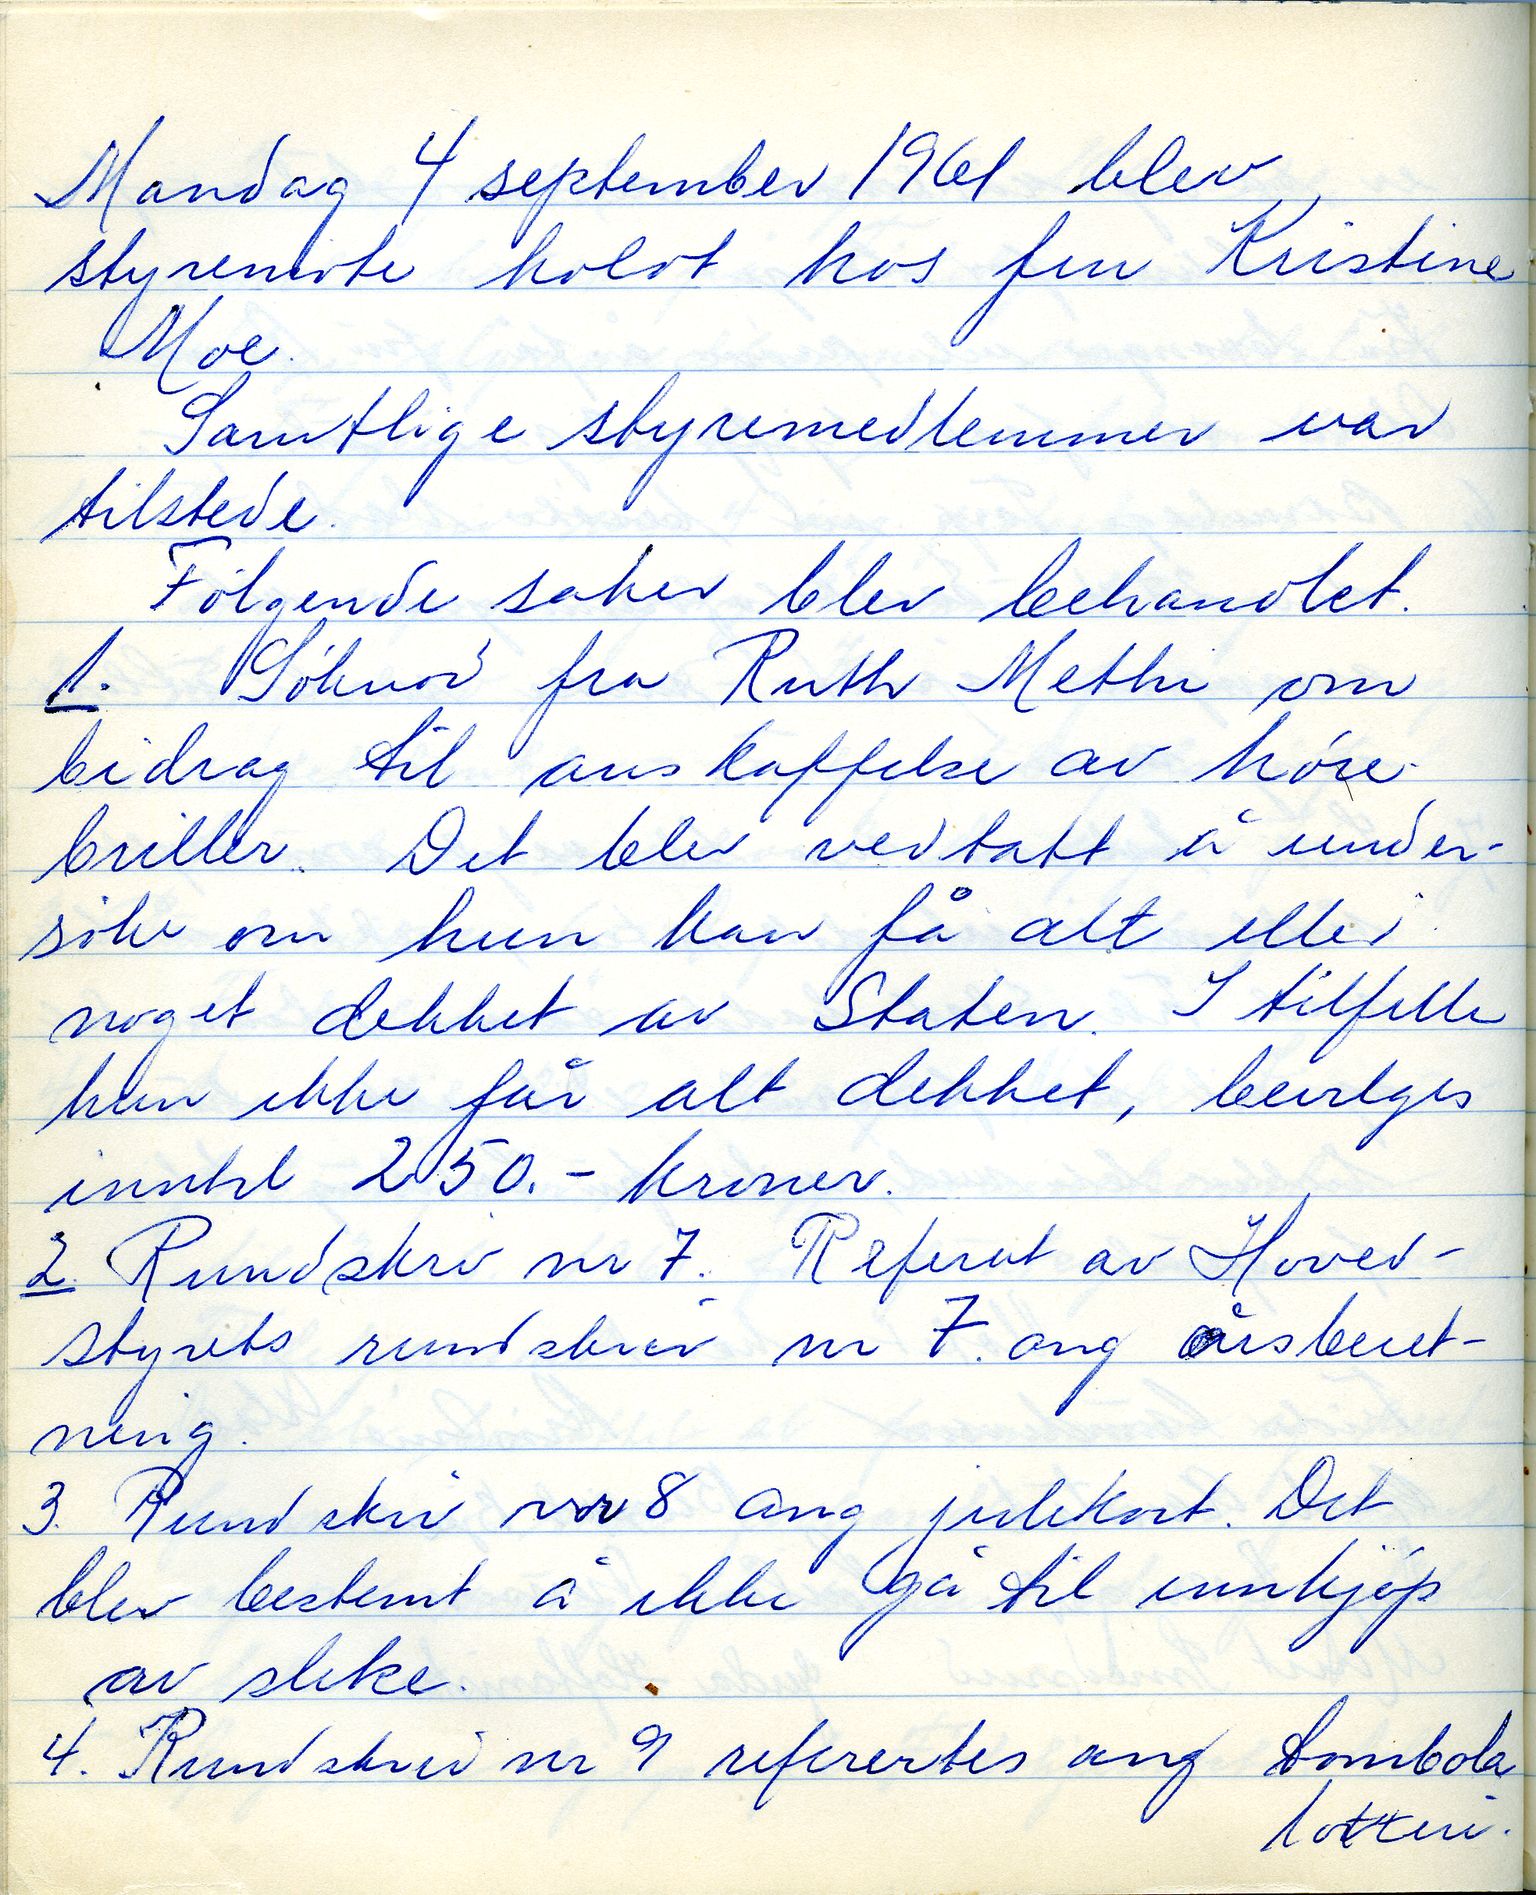 Mandag 4 september 1961 blev
styremöte holdt hos fru Kristine
Moe.
Samtlige styremedlemmer var
tilstede.
Følgende saker blev behandlet.
1. Söknad fra Ruth Methi om
bidrag til anskaffelse av høre-
briller. Det blev vedtatt å under-
søke om hun kan få alt eller
noget dekket av Staten. I tilfelle
hun ikke får alt dekket, bevilges
inntil 250.- kroner.
2. Rundskriv nr 7. Referat av Hoved-
styrets rundskriv nr 7. ang årsberet-
ning.
3. Rundskriv nr 8 ang julekort. Det
blev bestemt å ikke gå til innkjøp
av slike.
4. Rundskriv nr 9 refertes ang tombola
lotteri.